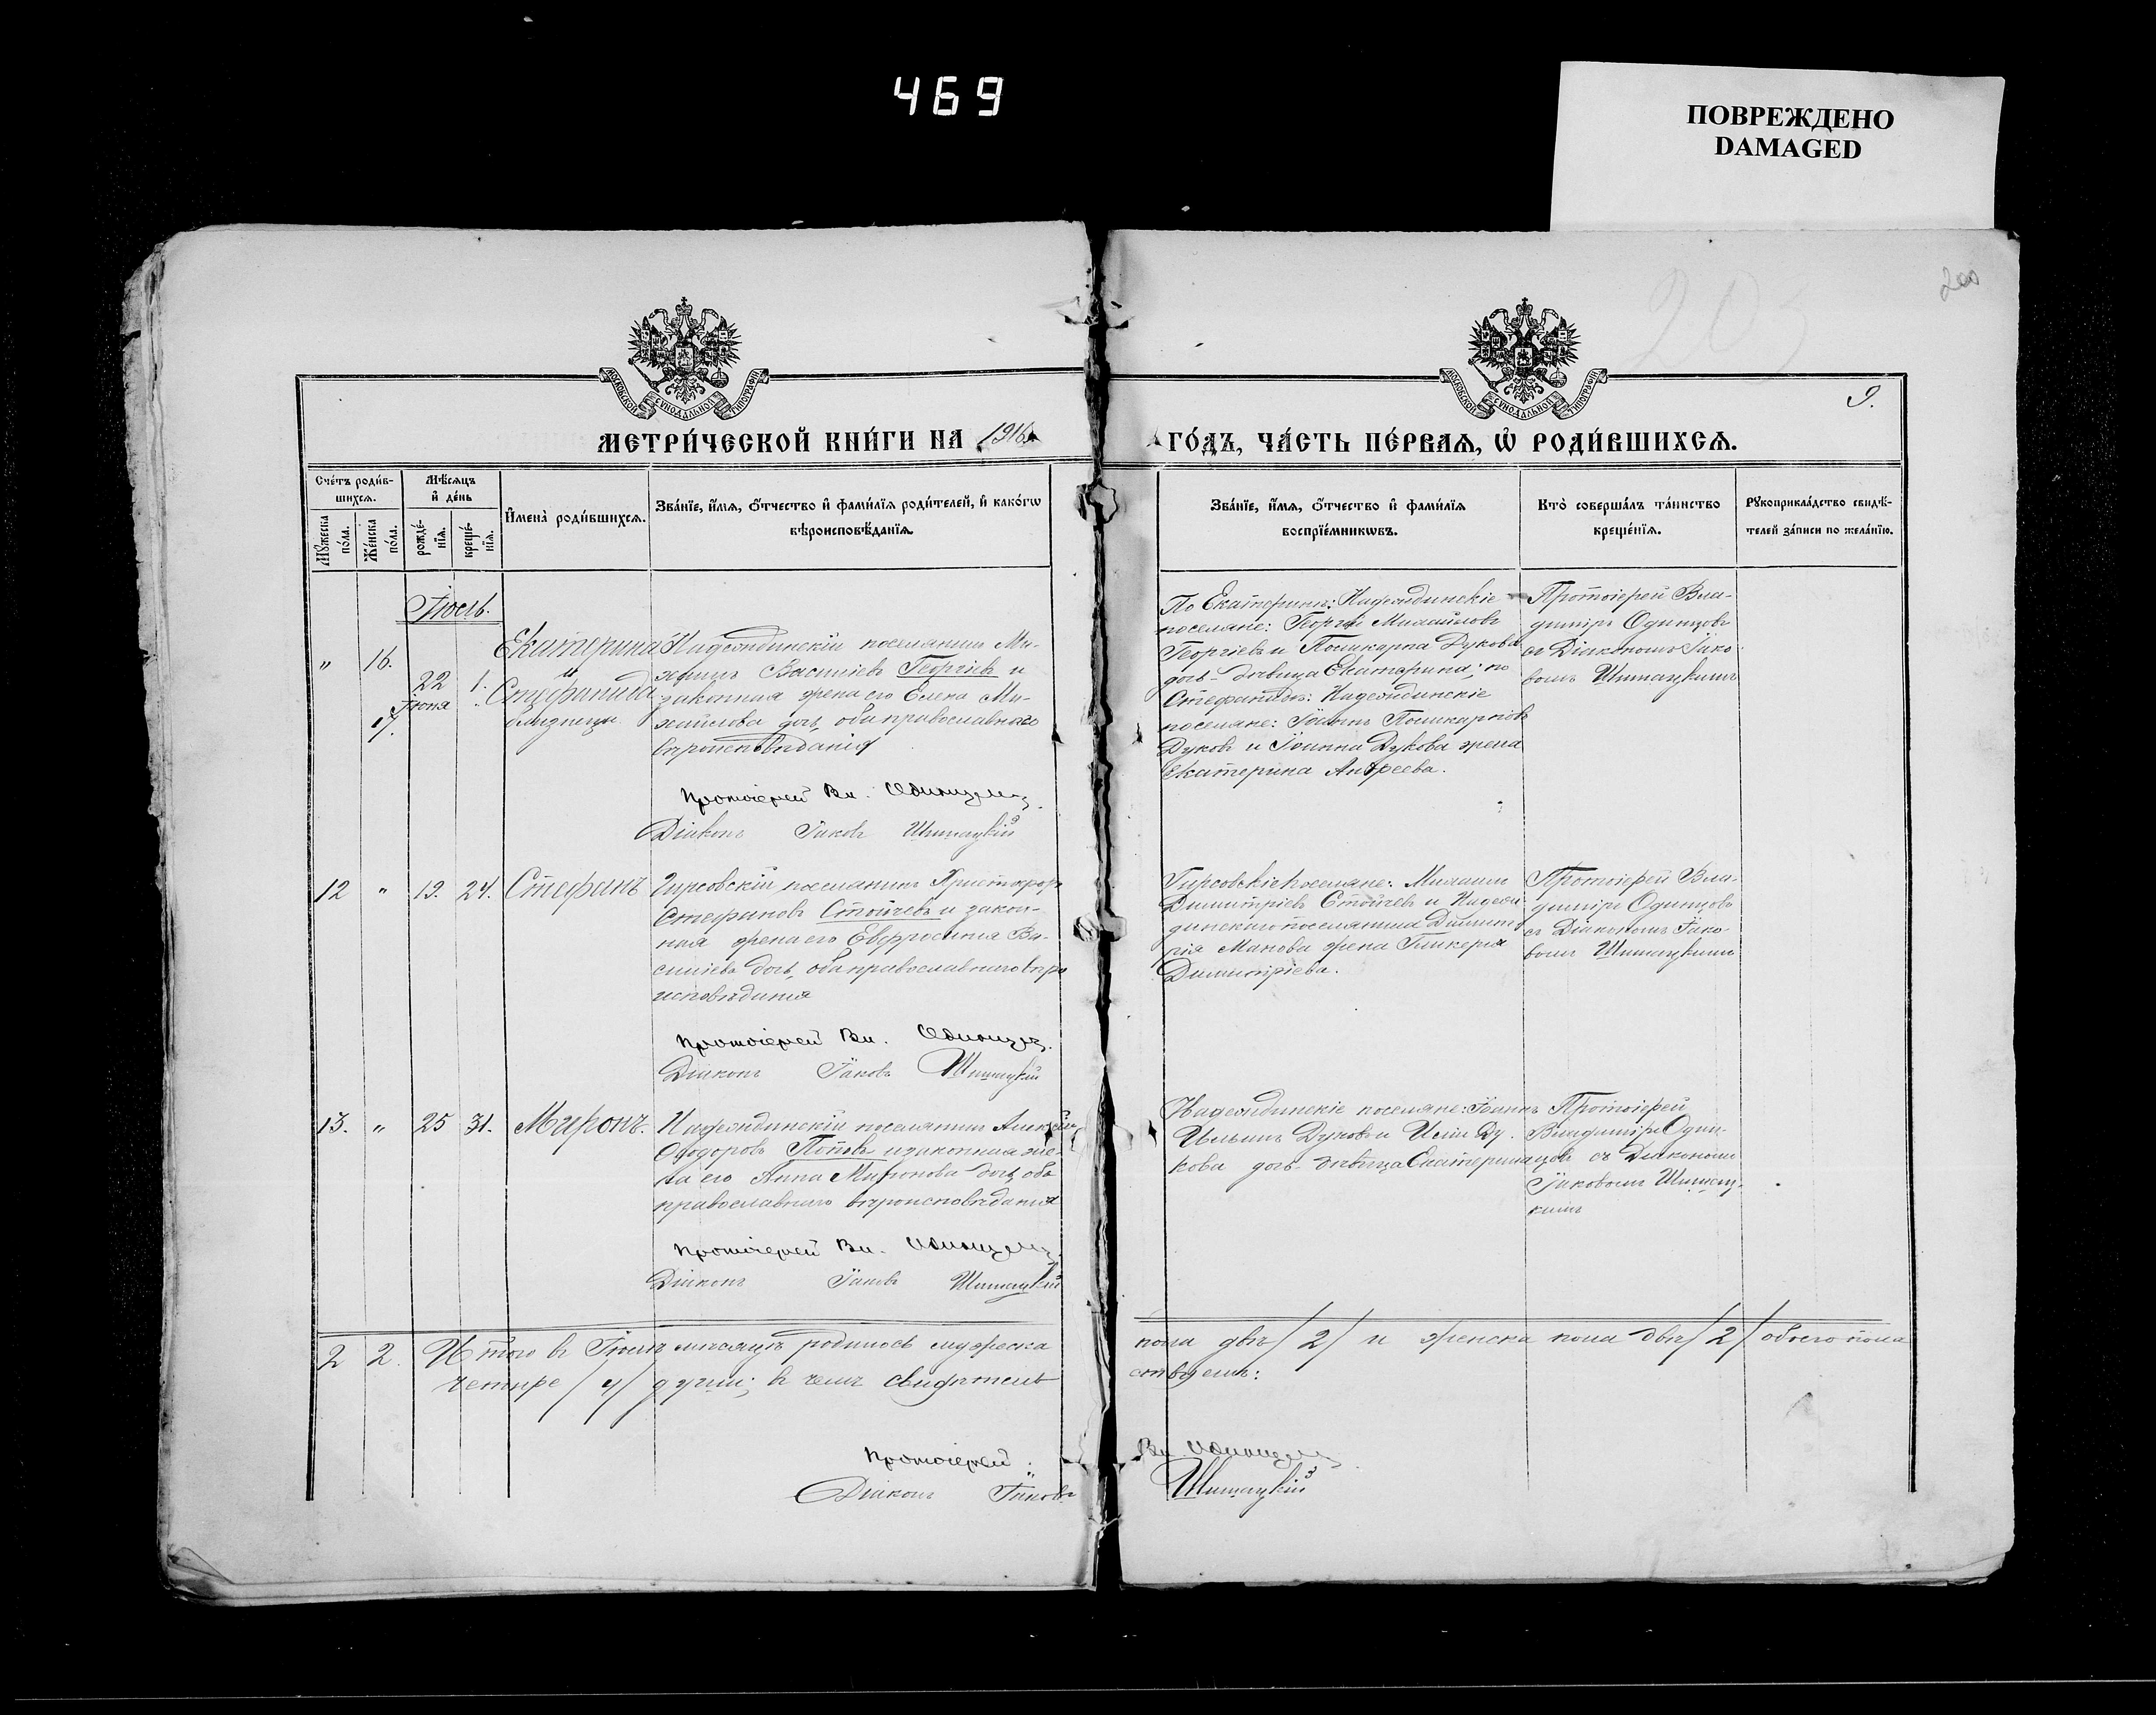 469
ПОВРЕЖДЕНО
DAMAGED
200
203
9.
МОСКОВСКОЙ СѴНОДАЛЬНОЙ ТИПОГРАФІИ
МОСКОВСКОЙ СѴНОДАЛЬНОЙ ТИПОГРАФІИ
МЕТРИ́ЧЕСКОЙ КНИ́ГИ НА 1916
ГО́ДЪ, ЧА́СТЬ ПЕ́РВАѦ, Ѡ҆ РОДИ́ВШИХСѦ.
Сче́тъ роди́в-
шихсѧ.
Мꙋ́жеска
по́ла.
Же́нска
по́ла.
Мѣ́сѧцъ
и҆ де́нь
рожде́-
нїѧ.
креще́-
нїѧ.
И҆мена̀ роди́вшихсѧ.
Зва́нїе, и҆́мѧ, ѻ҆́тчество и҆ фами́лїѧ роди́телей, и҆ како́гѡ
вѣроисповѣ́данїѧ.
Зва́нїе, и҆́мѧ, ѻ҆́тчество и҆ фами́лїѧ
воспрїе́мникѡвъ.
Кто̀ соверша́лъ та́инство
креще́нїѧ.
Рꙋкоприкла́дство свидѣ́-
телей за́писи по жела́нїю.
Іюль.
" 16. 22 Іюня 1. Екатерина
и
17. Стефанида
близнецы
Надеждинскій поселянинъ Ми-
хаилъ Василіевъ Георгіевъ и
законная жена его Елена Ми-
хайлова дочь, оба православнаго
вѣроисповѣданія
Протоіерей Вл. Одинцовъ
Діаконъ Іаковъ Шишацкій
По Екатеринѣ: Надеждинскіе
поселяне: Георгій Михаиловъ
Георгіевъ и Поликарпа Дукова
дочь-дѣвица Екатерина; по
Стефанидѣ: Надеждинскіе
поселяне: Іоаннъ Поликарповъ
Дуковъ и Іоанна Дукова жена
Екатерина Андреева.
Протоіерей Вла-
диміръ Одинцовъ
съ Діакономъ Іако-
вомъ Шишацкимъ
12 " 19. 24. Стефанъ
Гирсовскій поселянинъ Христофоръ
Стефановъ Стойчевъ и закон-
ная жена его Евфросинія Ва-
силіева дочь, оба православнаго вѣро
исповѣданія
Протоіерей Вл. Одинцовъ
Діаконъ Іаковъ Шишацкій
Гирсовскіе поселяне: Михаилъ
Димитріевъ Стойчевъ и Надеж
динскаго поселянина Димит
рія Манова жена Гликерія
Димитріева.
Протоіерей Вла-
диміръ Одинцовъ
съ Діакономъ Іако-
вомъ Шишацкимъ
13. " 25 31. Миронъ.
Надеждинскій поселянинъ Алексій
Ѳеодоровъ Поповъ и законная же-
на его Анна Миронова дочь, оба
православнаго вѣроисповѣданія
Протоіерей Вл. Одинцовъ
Діаконъ Іаковъ Шишацкій
Надеждинскіе поселяне: Іоаннъ
Ильинъ Дуковъ и Иліи Ду-
кова дочь-дѣвица Екатерина
Протоіерей
Владиміръ Один-
цовъ съ Діакономъ
Іаковомъ Шишац-
кимъ
2 2. Итого въ Іюлѣ мѣсяцѣ родилось мужеска
пола двѣ /2/ и женска пола двѣ /2/ обоего пола
четыре /4/ души; въ чемъ свидѣтель
ствуемъ:
Протоіерей Вл. Одинцовъ
Діаконъ Іаковъ Шишацкій